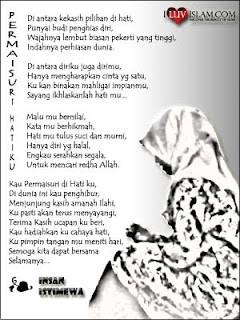 I LUV ISLAM.COM
PERMAISURI HATIKU
Di antara kekasih pilihan di hati,
Punyai budi penghias diri,
Wajahnya lembut biasan pekerti yang tinggi,
Indahnya perhiasan dunia.
Di antara diriku juga dirimu,
Hanya mengharapkan cinta yg satu,
Ku kan binakan mahligai impianmu,
Sayang ikhlaskanlah hati mu...
Malu mu bernilai,
Kata mu berhikmah,
Hati mu tulus suci dan murni,
Hanya diri yg halal,
Engkau serahkan segala,
Untuk mencari redha Allah.
Kau Permaisuri di Hati ku,
Di dunia ini kau penghibur,
Menjunjung kasih amanah Ilahi,
Ku pasti akan terus menyayangi,
Terima Kasih ucapan ku beri,
Kau hadiahkan ku cahaya hati,
Ku pimpin tangan mu meniti hari,
Semoga kita dapat bersama
Selamanya...
INSAN
ISTIMEWA